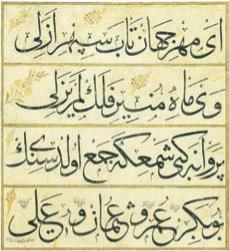 ای مهر جهان تاب سپهر ازلی
وی ماه منیر فلك لم یزلی
پروانه كبی شمعكه جمع اولدی سنك
بوبكر و عمر و عثمان و علی